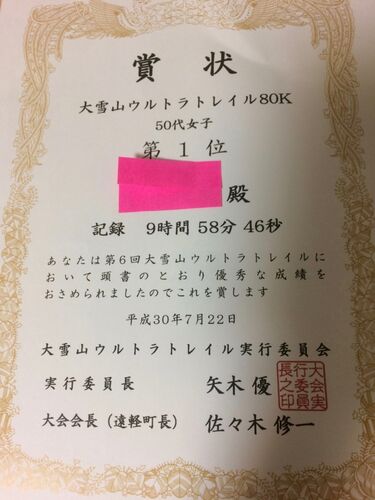 賞状
大雪山ウルトラトレイル80K
50代女子
第1位
殿
記録 9時間 58分 46秒
あなたは第6回大雪山ウルトラトレイルに
おいて頭書のとおり優秀な成績を
おさめられましたのでこれを賞します
平成30年7月22日
大雪山ウルトラトレイル実行委員会
実行委員長 矢木 優
大会会長（遠軽町長） 佐々木 修一
大会実
行委員
長之印